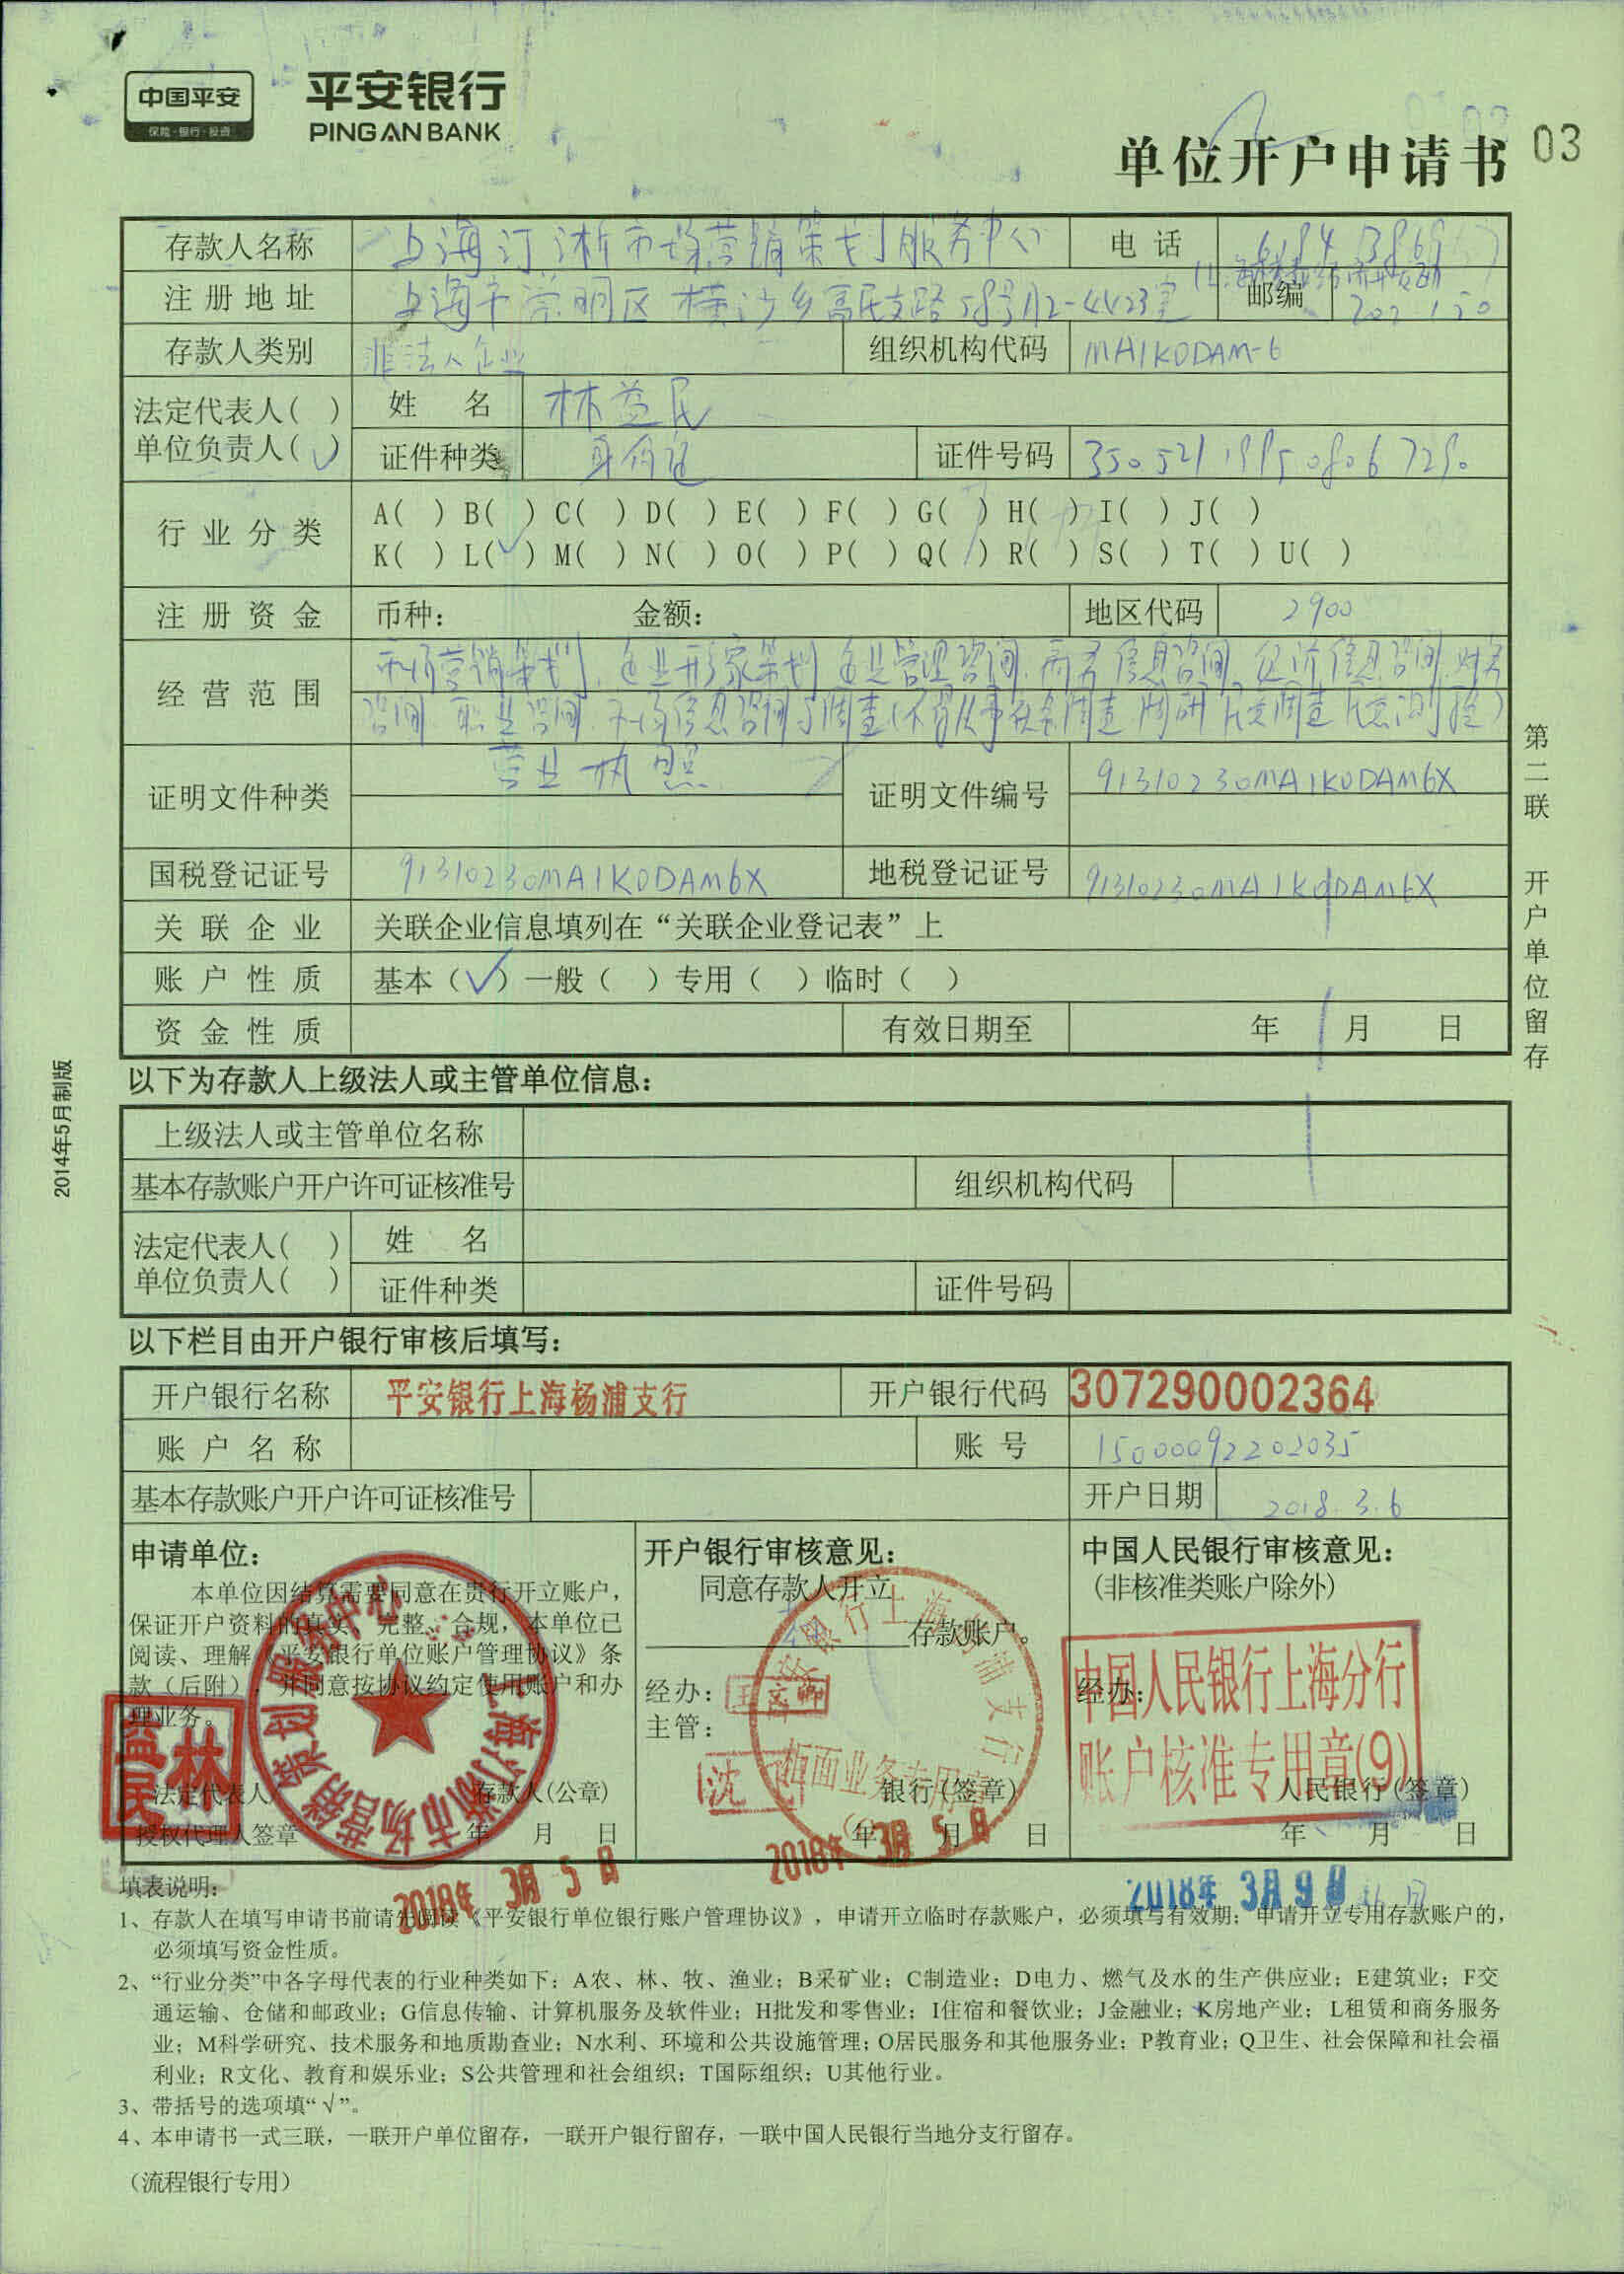 中国平安
保险·银行·投资
平安银行
PINGAN BANK
单位开户申请书 03
存款人名称 上海汀淅市场营销策划服务中心 电话
注册地址 上海市崇明区横沙乡富民支路58号A2-4423室 邮编 202150
存款人类别 非法人企业 组织机构代码 MA1K0DAM-6
法定代表人( ) 姓 名 林益民
单位负责人(√) 证件种类 身份证 证件号码
行业分类 A( ) B( ) C( ) D( ) E( ) F( ) G( ) H( ) I( ) J( )
K( ) L(√) M( ) N( ) O( ) P( ) Q( ) R( ) S( ) T( ) U( )
注册资金 币种: 金额: 地区代码 2900
经营范围 市场营销策划,企业形象策划,企业管理咨询,商务信息咨询,经济信息咨询,财务
咨询,职业咨询,市场信息咨询与调查(不得从事社会调查,调研,民意调查,民意测验)
证明文件种类 营业执照 证明文件编号 91310230MA1K0DAM6X
国税登记证号 91310230MA1K0DAM6X 地税登记证号 91310230MA1K0DAM6X
关联企业 关联企业信息填列在“关联企业登记表”上
账户性质 基本(√)一般( )专用( )临时( )
资金性质 有效日期至 年 月 日
第二联 开户单位留存
2014年5月制版
以下为存款人上级法人或主管单位信息:
上级法人或主管单位名称
基本存款账户开户许可证核准号 组织机构代码
法定代表人( ) 姓 名
单位负责人( ) 证件种类 证件号码
以下栏目由开户银行审核后填写:
开户银行名称 平安银行上海杨浦支行 开户银行代码 307290002364
账户名称 账号 15000092202035
基本存款账户开户许可证核准号 开户日期 2018.3.6
申请单位:
本单位因结算需要同意在贵行开立账户,
保证开户资料的真实、完整、合规,本单位已
阅读、理解《平安银行单位账户管理协议》条
款(后附),并同意按协议约定使用账户和办
理业务。
法定代表人/ 存款人(公章)
授权代理人签章 年 月 日
林益民
上海汀淅市场营销策划服务中心
2018年 3月 5日
开户银行审核意见:
同意存款人开立
存款账户。
经办:
主管: 沈
银行(签章)
年 月 日
平安银行上海杨浦支行
柜面业务专用章
2018年 3月 5日
中国人民银行审核意见:
(非核准类账户除外)
经办:
中国人民银行上海分行
账户核准专用章(9)
人民银行(签章)
年 月 日
2018年 3月 9日
填表说明:
1、存款人在填写申请书前请先阅读《平安银行单位银行账户管理协议》,申请开立临时存款账户,必须填写有效期;申请开立专用存款账户的,
必须填写资金性质。
2、“行业分类”中各字母代表的行业种类如下:A农、林、牧、渔业;B采矿业;C制造业;D电力、燃气及水的生产供应业;E建筑业;F交
通运输、仓储和邮政业;G信息传输、计算机服务及软件业;H批发和零售业;I住宿和餐饮业;J金融业;K房地产业;L租赁和商务服务
业;M科学研究、技术服务和地质勘查业;N水利、环境和公共设施管理;O居民服务和其他服务业;P教育业;Q卫生、社会保障和社会福
利业;R文化、教育和娱乐业;S公共管理和社会组织;T国际组织;U其他行业。
3、带括号的选项填“√”。
4、本申请书一式三联,一联开户单位留存,一联开户银行留存,一联中国人民银行当地分支行留存。
(流程银行专用)